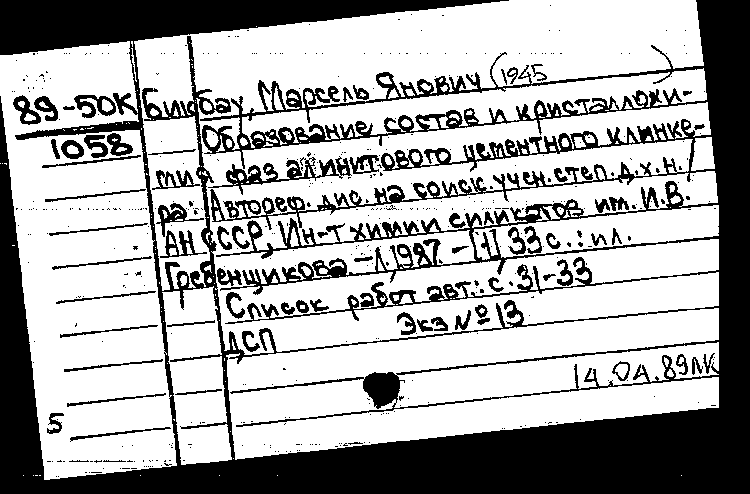 89-50К Бикбау, Марсель Янович (1945 )
1058 Образование, состав и кристаллохи-
мия фаз алинитового цементного клинке-
ра: Автореф. дис. на соиск. учен. степ. д.х.н. /
АН СССР, Ин-т химии силикатов им. И.В.
Гребенщикова. - Л., 1987. - [1], 33 с. : ил.
Список работ авт.: с. 31-33
ДСП Экз № 13
14.04.89
5